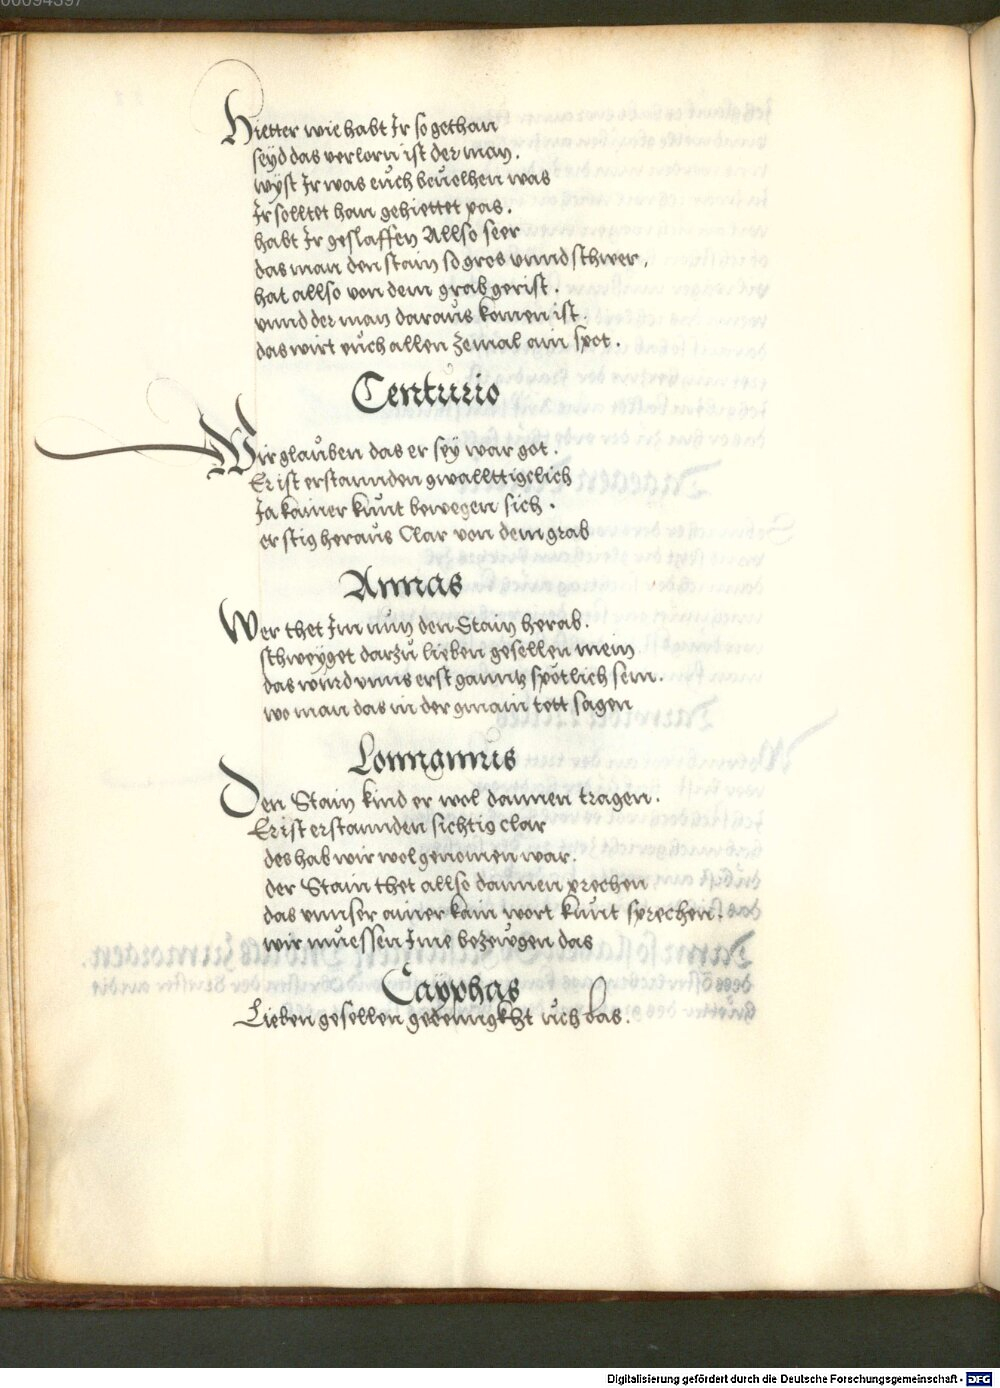 Hietter wie habt Ir so gethan
seÿd das verlorn ist der man.
wÿst Ir was euch beuelhen was
Ir solltet han gehiettet pas.
habt Ir geslaffen Allso seer
das man den stain so gros vnnd schwer.
hat allso von dem grab gerist.
vnnd der man daraus komen ist.
das wirt euch allen zemal ain spot.
Centurio
Wir glauben das er seÿ war got.
Er ist erstannden gwallttigclich
Ja kainer kunt bewegen sich.
er stig heraus Clar von dem grab
Annas
Wer thet Im nun den Stain herab.
schweÿget darzu lieben gesellen mein
das wurd vnns erst ganntz spötlich sein.
wo man das in der gmain tett sagen
Lonnginus
Den Stain kind er wol dannen tragen.
Er ist erstannden sichtig clar
des hab wir wol genomen war.
der Stain thet allso dannen prechen
das vnnser ainer kain wort kunt sprechen.
wir muessen Ime bezeugen das
Caÿphas
Lieben gesellen uch bas.
Digitalisierung gefördert durch die Deutsche Forschungsgemeinschaft - DFG